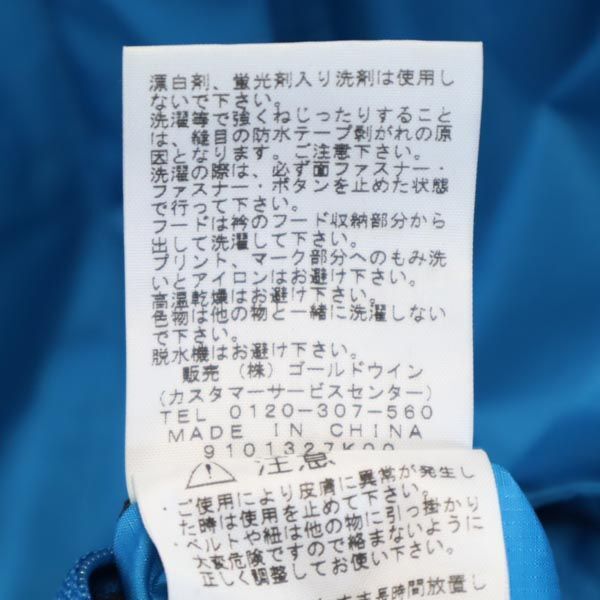 漂白剤、蛍光剤入り洗剤は使用し
ないで下さい。
洗濯等で強くねじったりすること
は、縫目の防水テープ剥がれの原
因となります。ご注意下さい。
洗濯の際は、必ず面ファスナー・
ファスナー・ボタンを止めた状態
で行って下さい。
フードは衿のフード収納部分から
出して洗濯して下さい。
プリント、マーク部分へのもみ洗
いとアイロンはお避け下さい。
高温乾燥はお避け下さい。
色物は他の物と一緒に洗濯しない
で下さい。
脱水機はお避け下さい。
販売 (株) ゴールドウイン
(カスタマーサービスセンター)
TEL 0120-307-560
MADE IN CHINA
9101327K00
注意
・ご使用により皮膚に異常が発生し
た時は使用を止めて下さい。
・ベルトや紐は他の物に引っ掛かり
大変危険ですので絡まないように
正しく調整してお使い下さい。
ま長時間放置し